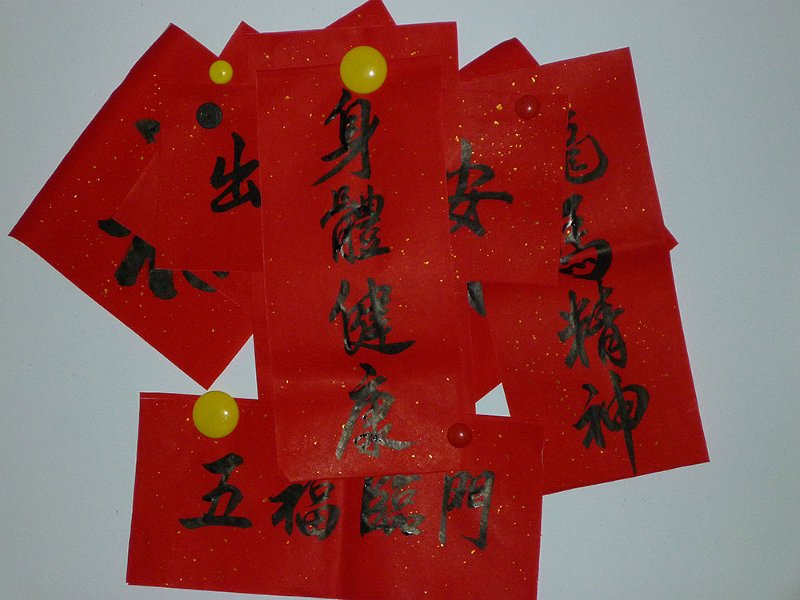 身體健康
出
安
馬精神
五福臨門